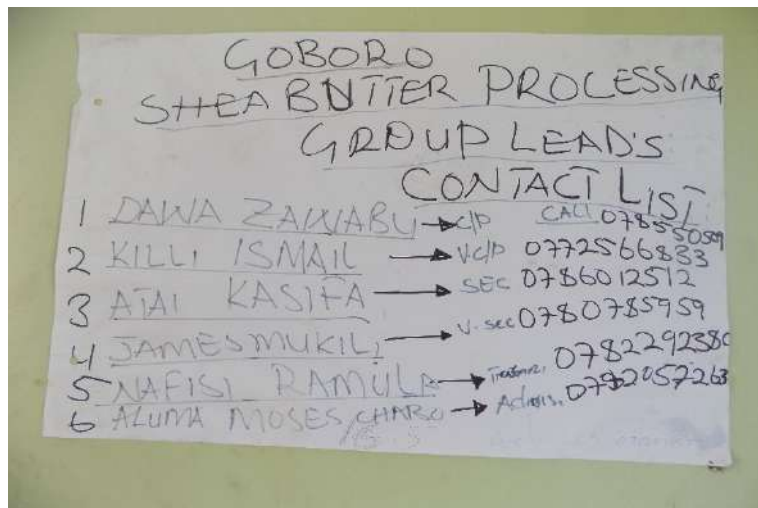 GOBORO
SHEA BUTTER PROCESSING
GROUP LEAD'S
CONTACT LIST
1 DAWA ZAWABU → C/P CALL
2 KILLI ISMAIL → V C/P 0772566833
3 ATAI KASIFA → SEC 0786012512
4 JAMES MUKILI → V. sec 0780785959
5 NAFISI RAMULA →
6 ALUMA MOSES CHARO → Advis.